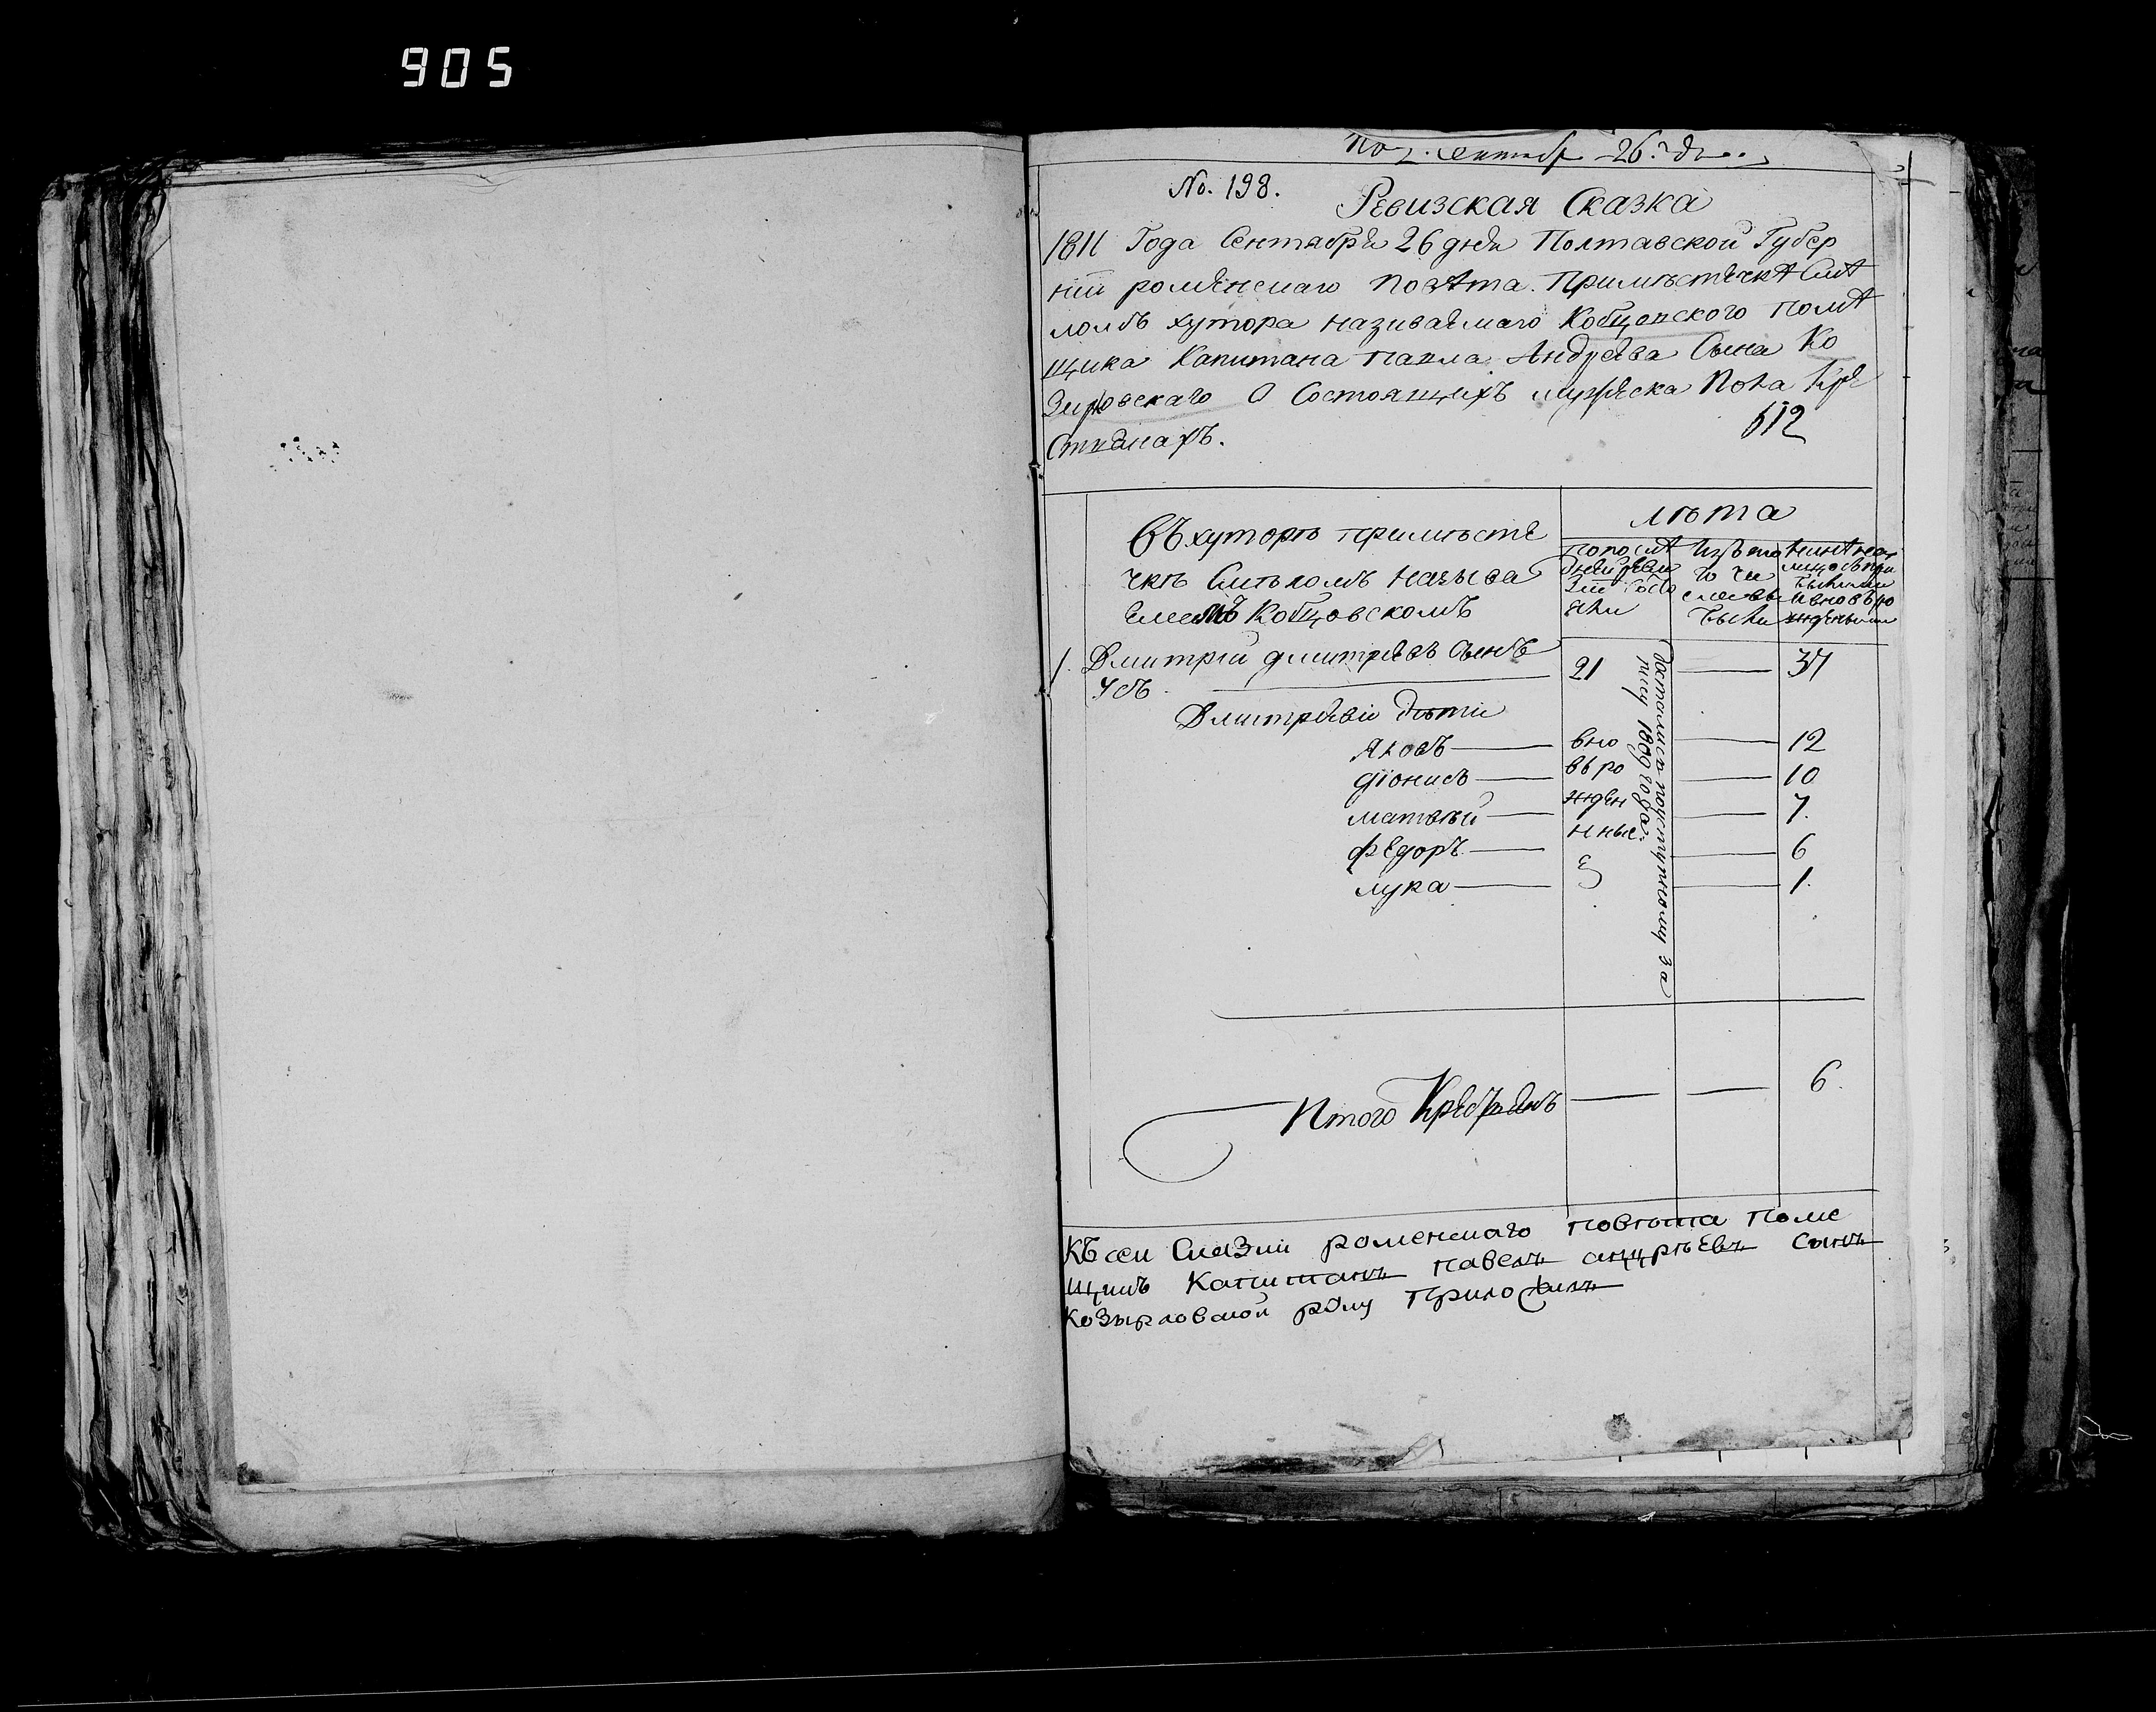 905
Сентябр 26.
No. 198.
Ревизская Сказка
1811 Года Сентября 26 дня Полтавской Губер
нии роменскаго повѣта. Примѣстечкѣ Смѣ
ломъ хутора називаемаго Кобцовского помѣ
щика Капитана павла Андреева Сына Ко
Зирловскаго О Состоящихъ мужеска Пола Кре
612
Стянахъ.
Въ хуторѣ примѣсте
чкѣ Смѣломъ называ
Емомъ Кобцовскомъ
лѣта
попослѣ
дней реви
Зіи состо
яли
Изъ того
числа вы
были
нинѣ на
лицо
и вновь ро
ждеными
1. Дмитрій дмитріевъ Сынъ 21 37
Дмитріеви дѣти
яковъ вно 12
діонисъ вь ро 10
матвѣй жден 7.
Федоръ нные 6
лука 1.
1809 года.
Итого Крестьянъ 6.
Къ сей Сказки роменскаго повѣта поме
щикъ Капитанъ павелъ андрѣевъ сынъ
Козырловской руку Приложилъ